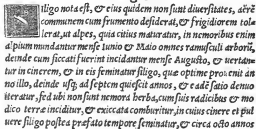 Siligo nota est, & eius quidem non sunt diuersitates, aërē
communem cum frumento desiderat, & frigidiorem tole
lerat, ut alpes, quia citius maturatur, in nemoribus enim
alpium mundantur mense Iunio & Maio omnes ramusculi arborū,
deinde cum siccati fuerint incidantur mense Augusto, & uertan
tur in cinerem, & in eis seminatur siligo, quæ optime prouenit an
no illo, deinde usq; ad septem quiescit annos, & eadē satio denuo
iteratur, sed ubi non sunt nemora herba, cum suis radicibus & mo
dico terra inciditur, & exiccata comburitur, in cuius cinere & pul
uere siligo postea præfato tempore seminatur, & circa octo annos